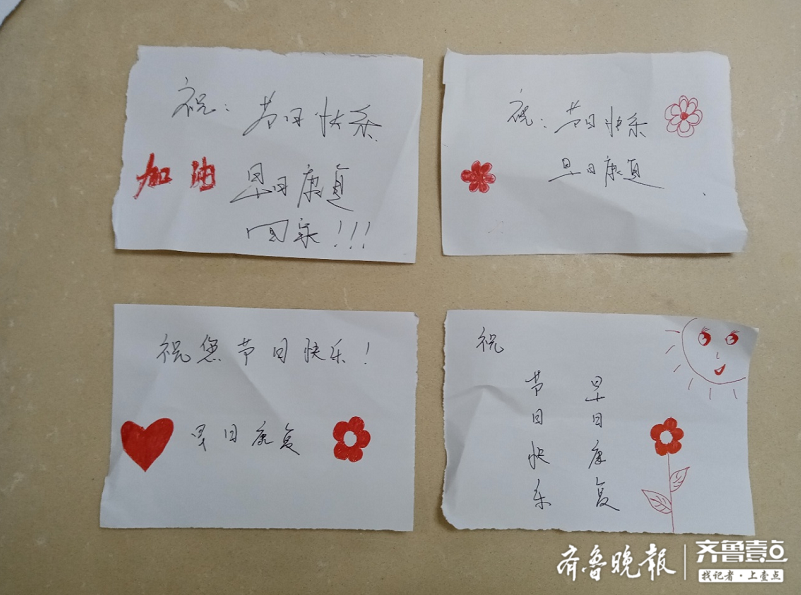 祝：节日快乐
加油
早日康复
回家!!!
祝：节日快乐
早日康复
祝您节日快乐！
早日康复
祝
节日快乐
早日康复
齐鲁晚报
齐鲁壹点
找记者·上壹点